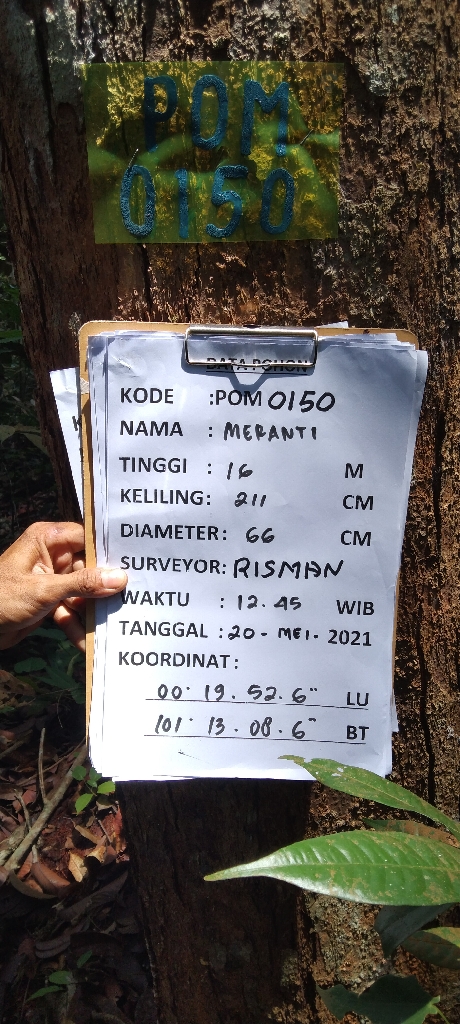 POM
0150
DATA POHON
KODE :POM 0150
NAMA : MERANTI
TINGGI : 16 M
KELILING: 211 CM
DIAMETER: 66 CM
SURVEYOR: RISMAN
WAKTU : 12.45 WIB
TANGGAL : 20 - MEI - 2021
KOORDINAT:
00° 19. 52. 6" LU
101° 13. 08. 6" BT